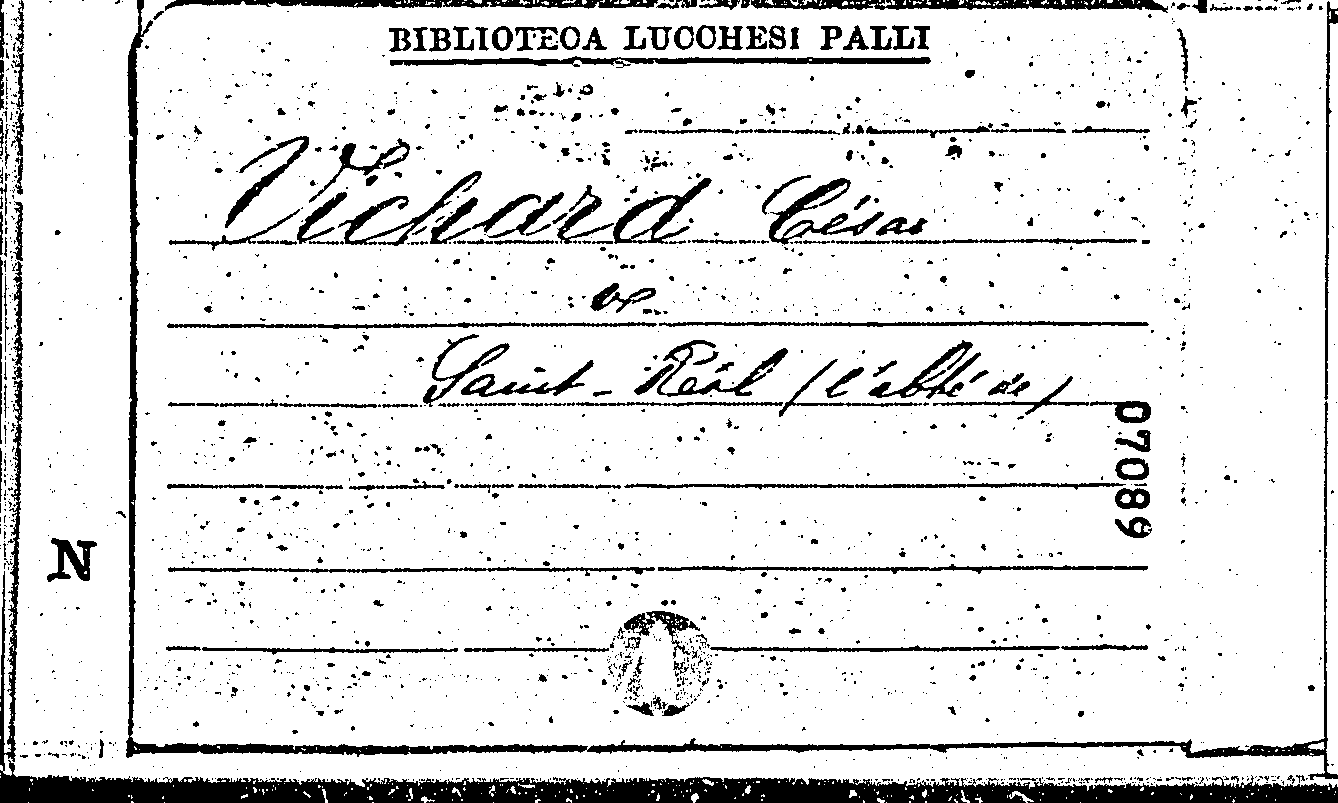 BIBLIOTECA LUCCHESI PALLI
Vichard César
Saint-Réal (l'abbé de)
07089
N